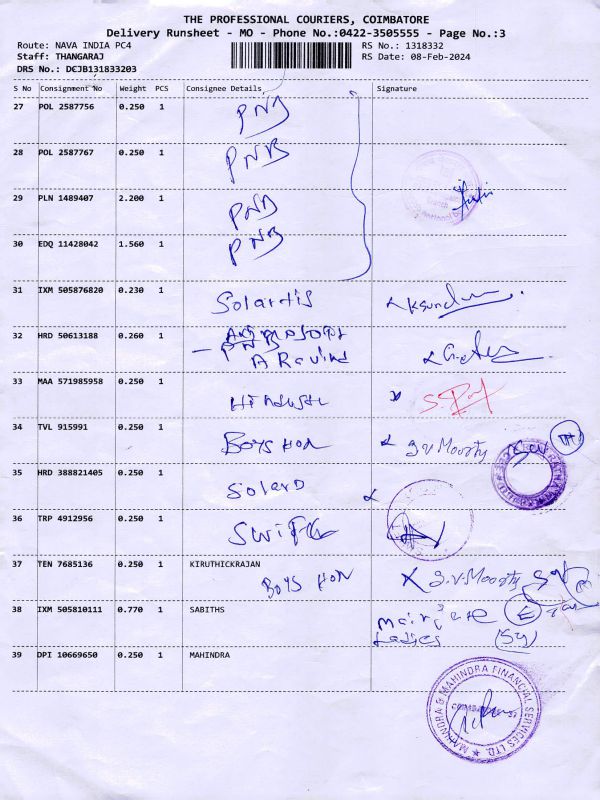 THE PROFESSIONAL COURIERS, COIMBATORE
Delivery Runsheet - MO - Phone No.:0422-3505555 - Page No.:3
Route: NAVA INDIA PC4 RS No.: 1318332
Staff: THANGARAJ RS Date: 08-Feb-2024
DRS No.: DCJB131833203
S No Consignment No Weight PCS Consignee Details Signature
27 POL 2587756 0.250 1 PNB
28 POL 2587767 0.250 1 PNB
29 PLN 1489407 2.200 1 PNB
30 EDQ 11428042 1.560 1 PNB
31 IXM 505876820 0.230 1 Solartis
32 HRD 50613188 0.260 1
PNB
A Ravind
33 MAA 571985958 0.250 1
34 TVL 915991 0.250 1 BOYS HON J.V Moorty
35 HRD 388821405 0.250 1 SOLARD
36 TRP 4912956 0.250 1
37 TEN 7685136 0.250 1 KIRUTHICKRAJAN
BOYS HON J.V. Moorty
38 IXM 505810111 0.770 1 SABITHS
Ladies
39 DPI 10669650 0.250 1 MAHINDRA
MAHINDRA & MAHINDRA FINANCIAL SERVICES LTD.